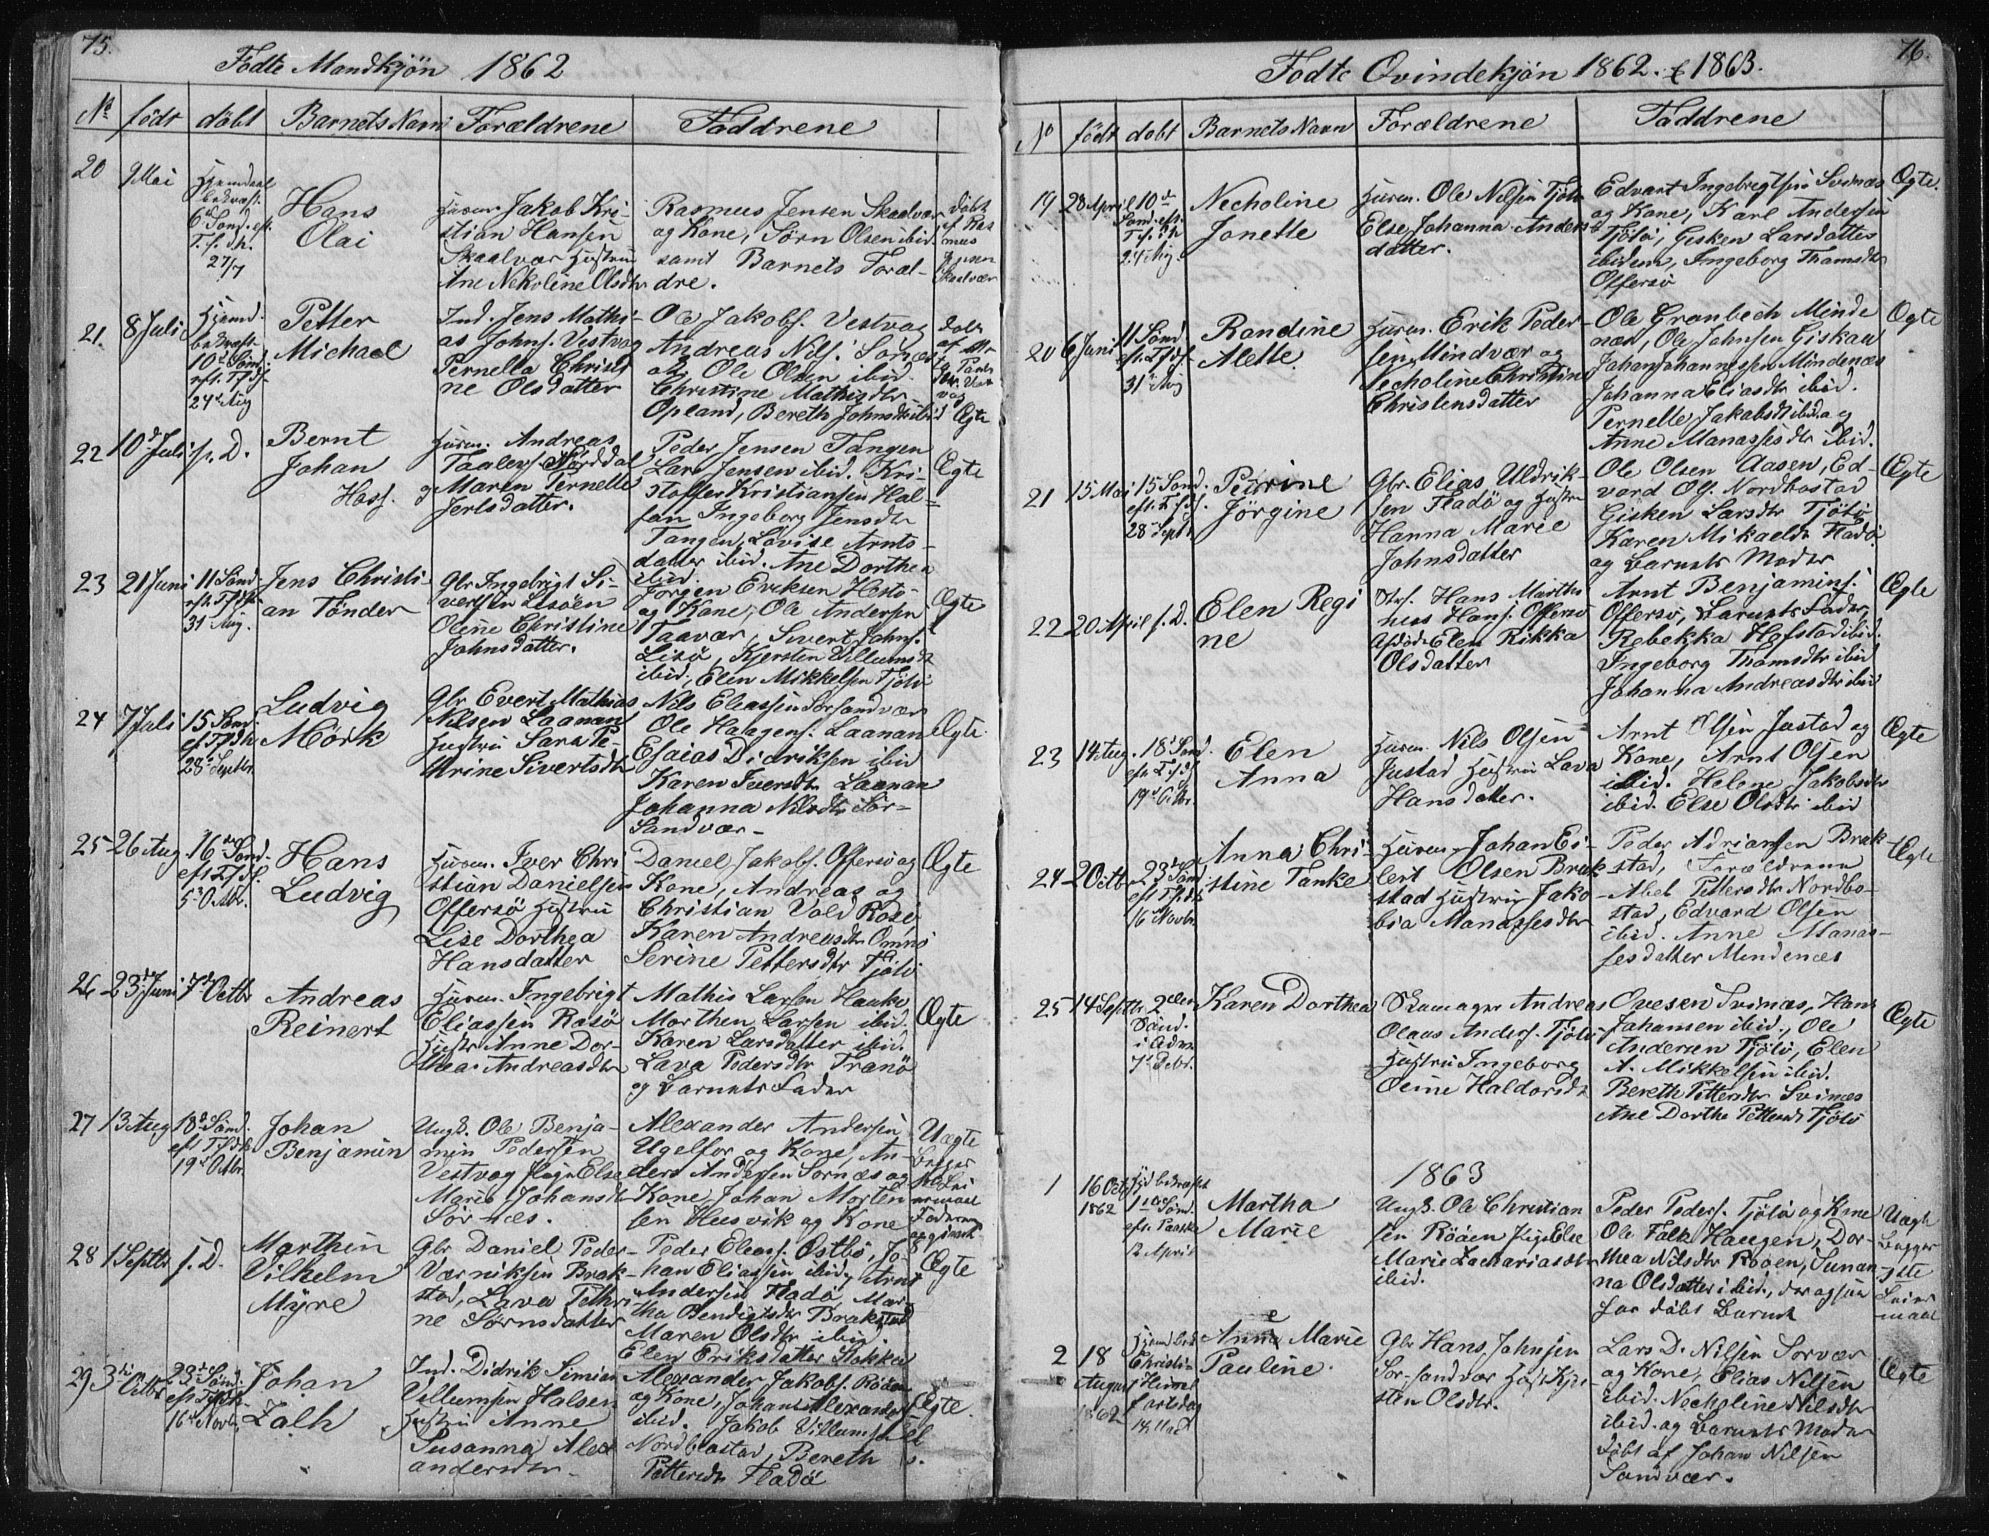 75.
Fødte Mandkjøn 1862
No født døbt Barnets Navn Forældrene Faddrene
20 9 Mai Hjemdøbt bekræft. 6 Sønd. eft. Tf. dh. 27/7
Hans
Olai
Huusm. Jakob Kri-
stian Hansen
Skaalvær Hustru
Ane Nekoline Olsdtr
Rasmus Jensen Skaalvær
og Kone, Sørn Olsen ibid.
samt Barnets Foræl-
dre.
døbt
af Ras
mus
Jensen
Skaalvær
21. 8 Juli Hjemd. bekræft. 10d Sønd. eft. Tfdh. 24d Aug
Petter
Michael
Ind. Jens Mathi-
as Johns. Vestvog
Pernella Christi
ne Olsdatter
Ole Jakobs. Vestvog
Andreas Nils. Sørnæs
Ole Olsen ibid.
Christine Mathisdtr
Opland, Bereth Johnsdtr ibid
Ægte
22 10d Juli s. D.
Bernt
Johan
Hass.
Huusm. Andreas
Taalefs. Sørddal
og Maren Pernelle
Jerlsdatter.
Peder Jensen Tangen
Lars Jensen ibid. Kri-
stoffer Kristiansen Hal-
sen Ingeborg Jensdtr
Tangen, Lovise Arnts-
datter ibid. Ane Dorthea
ibid.
Ægte
23 21 Juni 11 Sønd. eft. Tfdh. 31 Aug.
Jens Christi-
an Tønder
Gbr Ingebrigt Si-
vertsen Lisøen
Oline Christine
Johnsdatter.
Jørgen Eriksen Hestø
og Kone, Ole Andersen
Taavær, Sivert Johns.
Lisø, Kjersten Villumsdtr
ibid, Elen Mikkelsen Tjøtø
Ægte
24 7 Juli 15 Sønd. ef Tfdh 28d Septbr.
Ludvig
Mørk
Gbr Evert Mathias
Nilsen Laanan
Hustru Sara Pe-
trine Sivertsdtr
Nils Eliassen Sørsandvær
Ole Haagens. Laanan
Esaias Didriksen ibid
Karen Iversdtr Laanan
Johanna Nilsdtr Sør-
Sandvær-
Ægte.
25 26 Aug 16de Sønd. eft Tfdh. 5 Octbr.
Hans
Ludvig
Huusm. Iver Chri
stian Danielsen
Offersø Hustru
Lise Dorthea
Hansdatter
Daniel Jakobs. Offersø og
Kone, Andreas og
Christian Vold Rosø
Karen Andreasdtr Omnø
Serine Pettersdtr Tjøtø
Ægte
26 23d Juni 7d Octbr
Andreas
Reinert
Huusm. Ingebrigt
Eliassen Rosø
Hustr Anne Dor-
thea Andreasdtr
Mathis Larsen Hauke
Morthen Larsen ibid.
Karen Larsdatter ibid.
Lava Pedersdtr Tranø
og Barnets Fader
Ægte
27 13 Aug 18d Sønd. eft Tfdh 19d Octbr.
Johan
Benjamin
Ungk. Ole Benja-
min Pedersen
Vestvog Pige Else
Marie Johansdtr
Sørnæs.
Alexander Andersen
Ugelfor og Kone, An-
ders Andersen Sørnæs og
Kone, Johan Morten
sen Huusvik og Kone
Uægte
28 1 Septbr s. D.
Morthin
Vilhelm
Myre
Gbr Daniel Peder-
Værniksen Brak-
stad, Lava Pethri
ne Sørnsdatter
Peder Eleass. Østbø, Jo-
han Eliassen ibid, Arnt
Andersen Fladø Mar-
tha Bendigtsdtr Brakstad
Maren Olsdtr ibid.
Elen Eriksdatter Stokka
Ægte
29 3die Octbr 23d Sønd. eft Tfdh. 16d Novbr.
Johan
Zalh
Ind. Didrik Simian
Villumsen Halsen
Hustru Anne
Susanna Alex
andersdtr-
Alexander Jakobs. Røden
og Kone, Johan Alexanders.
ibid. Jakob Villumsen
Nordbostad, Bereth
Pettersdtr Fladø
Ægte.
76.
Fødte Qvindekjøn 1862. & 1863.
No født døbt Barnets Navn Forældrene Faddrene
19 28 April 10d Sønd. eft. Tf. dh 24 Aug.
Necholine
Jonette
Huusm. Ole Nilsen Tjøtø
Else Johanna Anders
datter.
Edvart Ingebregtsen Svinæs
og Kone, Karl Andersen
Tjøtø, Gisken Larsdatter
ibidem, Ingeborg Thomsdtr
Offersø
Ægte.
20 6 Juni 11 Sønd. eft. Tfdh. 31 Aug
Randine
Alette.
Huusm. Erik Peder-
sen Mindvær og
Necholine Christine
Christensdatter
Ole Grønbech Minde
næs, Ole Johnsen Giskau
Johan Johannessen Mindenæs
Johanna Eliasdtr ibid.
Pernelle Jakobsdtr ibid. og
Anne Manassesdtr ibid.
Ægte
21 15 Mai 15 Sønd. eft. Tfdh. 28 Septbr
Petrine
Jørgine
Gbr. Elias Uldrik-
sen Fladø og Hustru
Hanna Marie
Johnsdatter
Ole Olsen Aasen, Ed-
vard Ols. Nordbostad
Gisken Larsdtr Tjøtø
Karen Mikaelsdtr Fladø
og Barnets Moder
Ægte
22 20 April s. D.
Elen Regi
ne
Hans Marthi
nus Hans. Offersø
Afdøde Elen Rikka
Olsdatter
Arnt Benjamins.
Offersø, Barnets Fader,
Rebekka Hofstad ibid.
Ingeborg Thomsdtr ibid
Johanna Andreasdtr ibid
Ægte
23 14 Aug. 18d Sønd. eft. Tfdh. 19d Octbr.
Elen
Anna
Huusm. Nils Olsen
Justad Hustru Lava
Hansdatter.
Arnt Olsen Justad og
Kone, Arnt Olsen
ibid. Helene Jakobsdtr
ibid. Else Olsdtr ibid
Ægte
24 2 Octbr 23de Sønd. eft Tfdh 16 Novbr.
Anna Chri-
stine Tanke
Huusm. Johan Ei-
lert Olsen Brak
stad Hustru Jako-
bia Manassesdtr
Peder Adriansen Brak
stad, Forældrene
Abel Pettersdtr Nordbo-
stad, Edvard Olsen
ibid. Anne Manas-
sesdatter Mindenæs
Ægte
25 14 Septbr 2den Sønd. i Advn. 7d Decbr.
Karen Dorthea
Skomager Andreas
Olaus Anders. Tjøtø
Hustru Ingeborg
Oline Haldorsdtr
Ovesen Svinæs, Hans
Johansen ibid, Ole
Andersen Tjøtø, Elen
A. Mikkelsen ibid.
Bereth Pettersdtr Svinæs
Ane Dorthe Pettersdtr Tjøtø
Ægte
1863
1 16 Octb 1862 1ste Sønd. eft. Paaske 12 April
Martha
Marie
Ungk. Ole Christian
sen Røøen Pige Else
Marie Zachariasdtr
ibid.
Peder Peders. Tjøtø og Kone
Ole Falk Haugen, Dor-
thea Nilsdtr Røøen, Sunan-
na Olsdatter ibid, der ogsaa
har døbt Barnet
Uægte
Begges
1ste
Leier
maal
2 18 August 1862 Hjemd. bekr. Christi Himmelfartsdag 14 Mai
Anne Marie
Pauline.
Gbr Hans Johnsen
Sør-sandvær Hustr Kjer
sten Olsdtr.
Lars D. Nilsen Sørvær
og Kone, Elias Nilsen
ibid. Necholine Nilsdtr
ibid. og Barnets Moder
døbt af Johan Nilsen
Sandvær.
Ægte